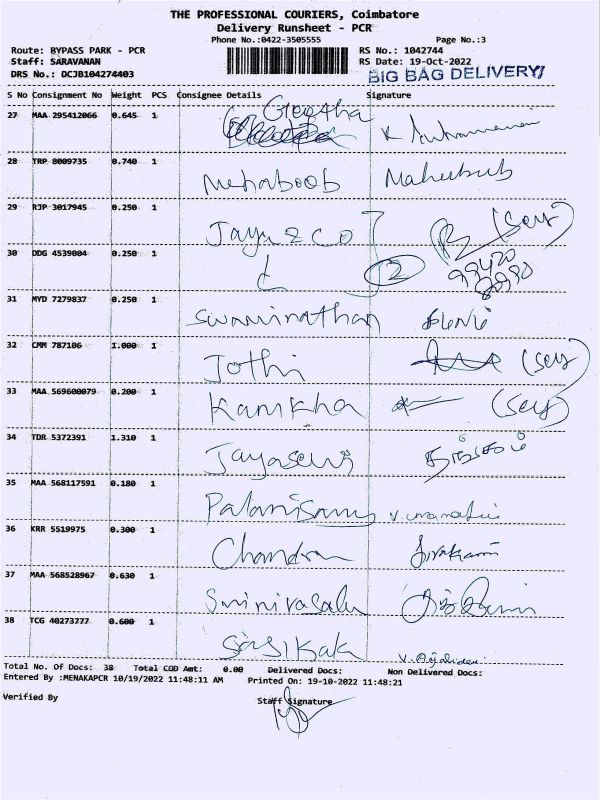 THE PROFESSIONAL COURIERS, Coimbatore
Delivery Runsheet - PCR
Phone No.:0422-3505555 Page No.:3
Route: BYPASS PARK - PCR RS No.: 1042744
Staff: SARAVANAN RS Date: 19-Oct-2022
DRS No.: DCJB104274403 BIG BAG DELIVERY
S No Consignment No Weight PCS Consignee Details Signature
27 MAA 295412066 0.645 1 Geetha
28 TRP 8009735 0.740 1 Mehaboob
29 RJP 3017945 0.250 1 Jayu & co (sey)
30 DDG 4539004 0.250 1 2
31 MYD 7279837 0.250 1 Swaminathan
32 CMM 787106 1.000 1 Jothi (sey)
33 MAA 569600079 0.200 1 (sey)
34 TDR 5372391 1.310 1
35 MAA 568117591 0.180 1 Palanisamy
36 KRR 5519975 0.300 1 Chandran
37 MAA 568528967 0.630 1 Srinivasalu
38 TCG 40273777 0.600 1
Total No. Of Docs: 38 Total COD Amt: 0.00 Delivered Docs: Non Delivered Docs:
Entered By :MENAKAPCR 10/19/2022 11:48:11 AM Printed On: 19-10-2022 11:48:21
Verified By Staff Signature